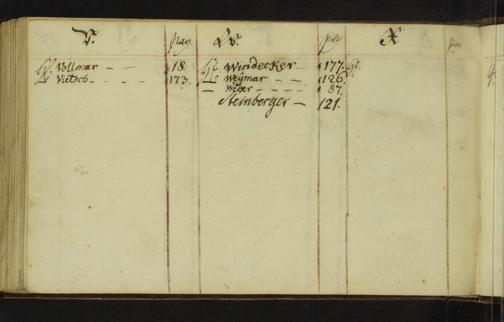 V. pag. W. pag. X
Hr. Vollmar - - 18. Hr. Windecker - 177.
Hr. Vietsch - - - - 173. Hr. Weÿmar - - 126.
- Weber - - - - 87.
Steinberger - 121.